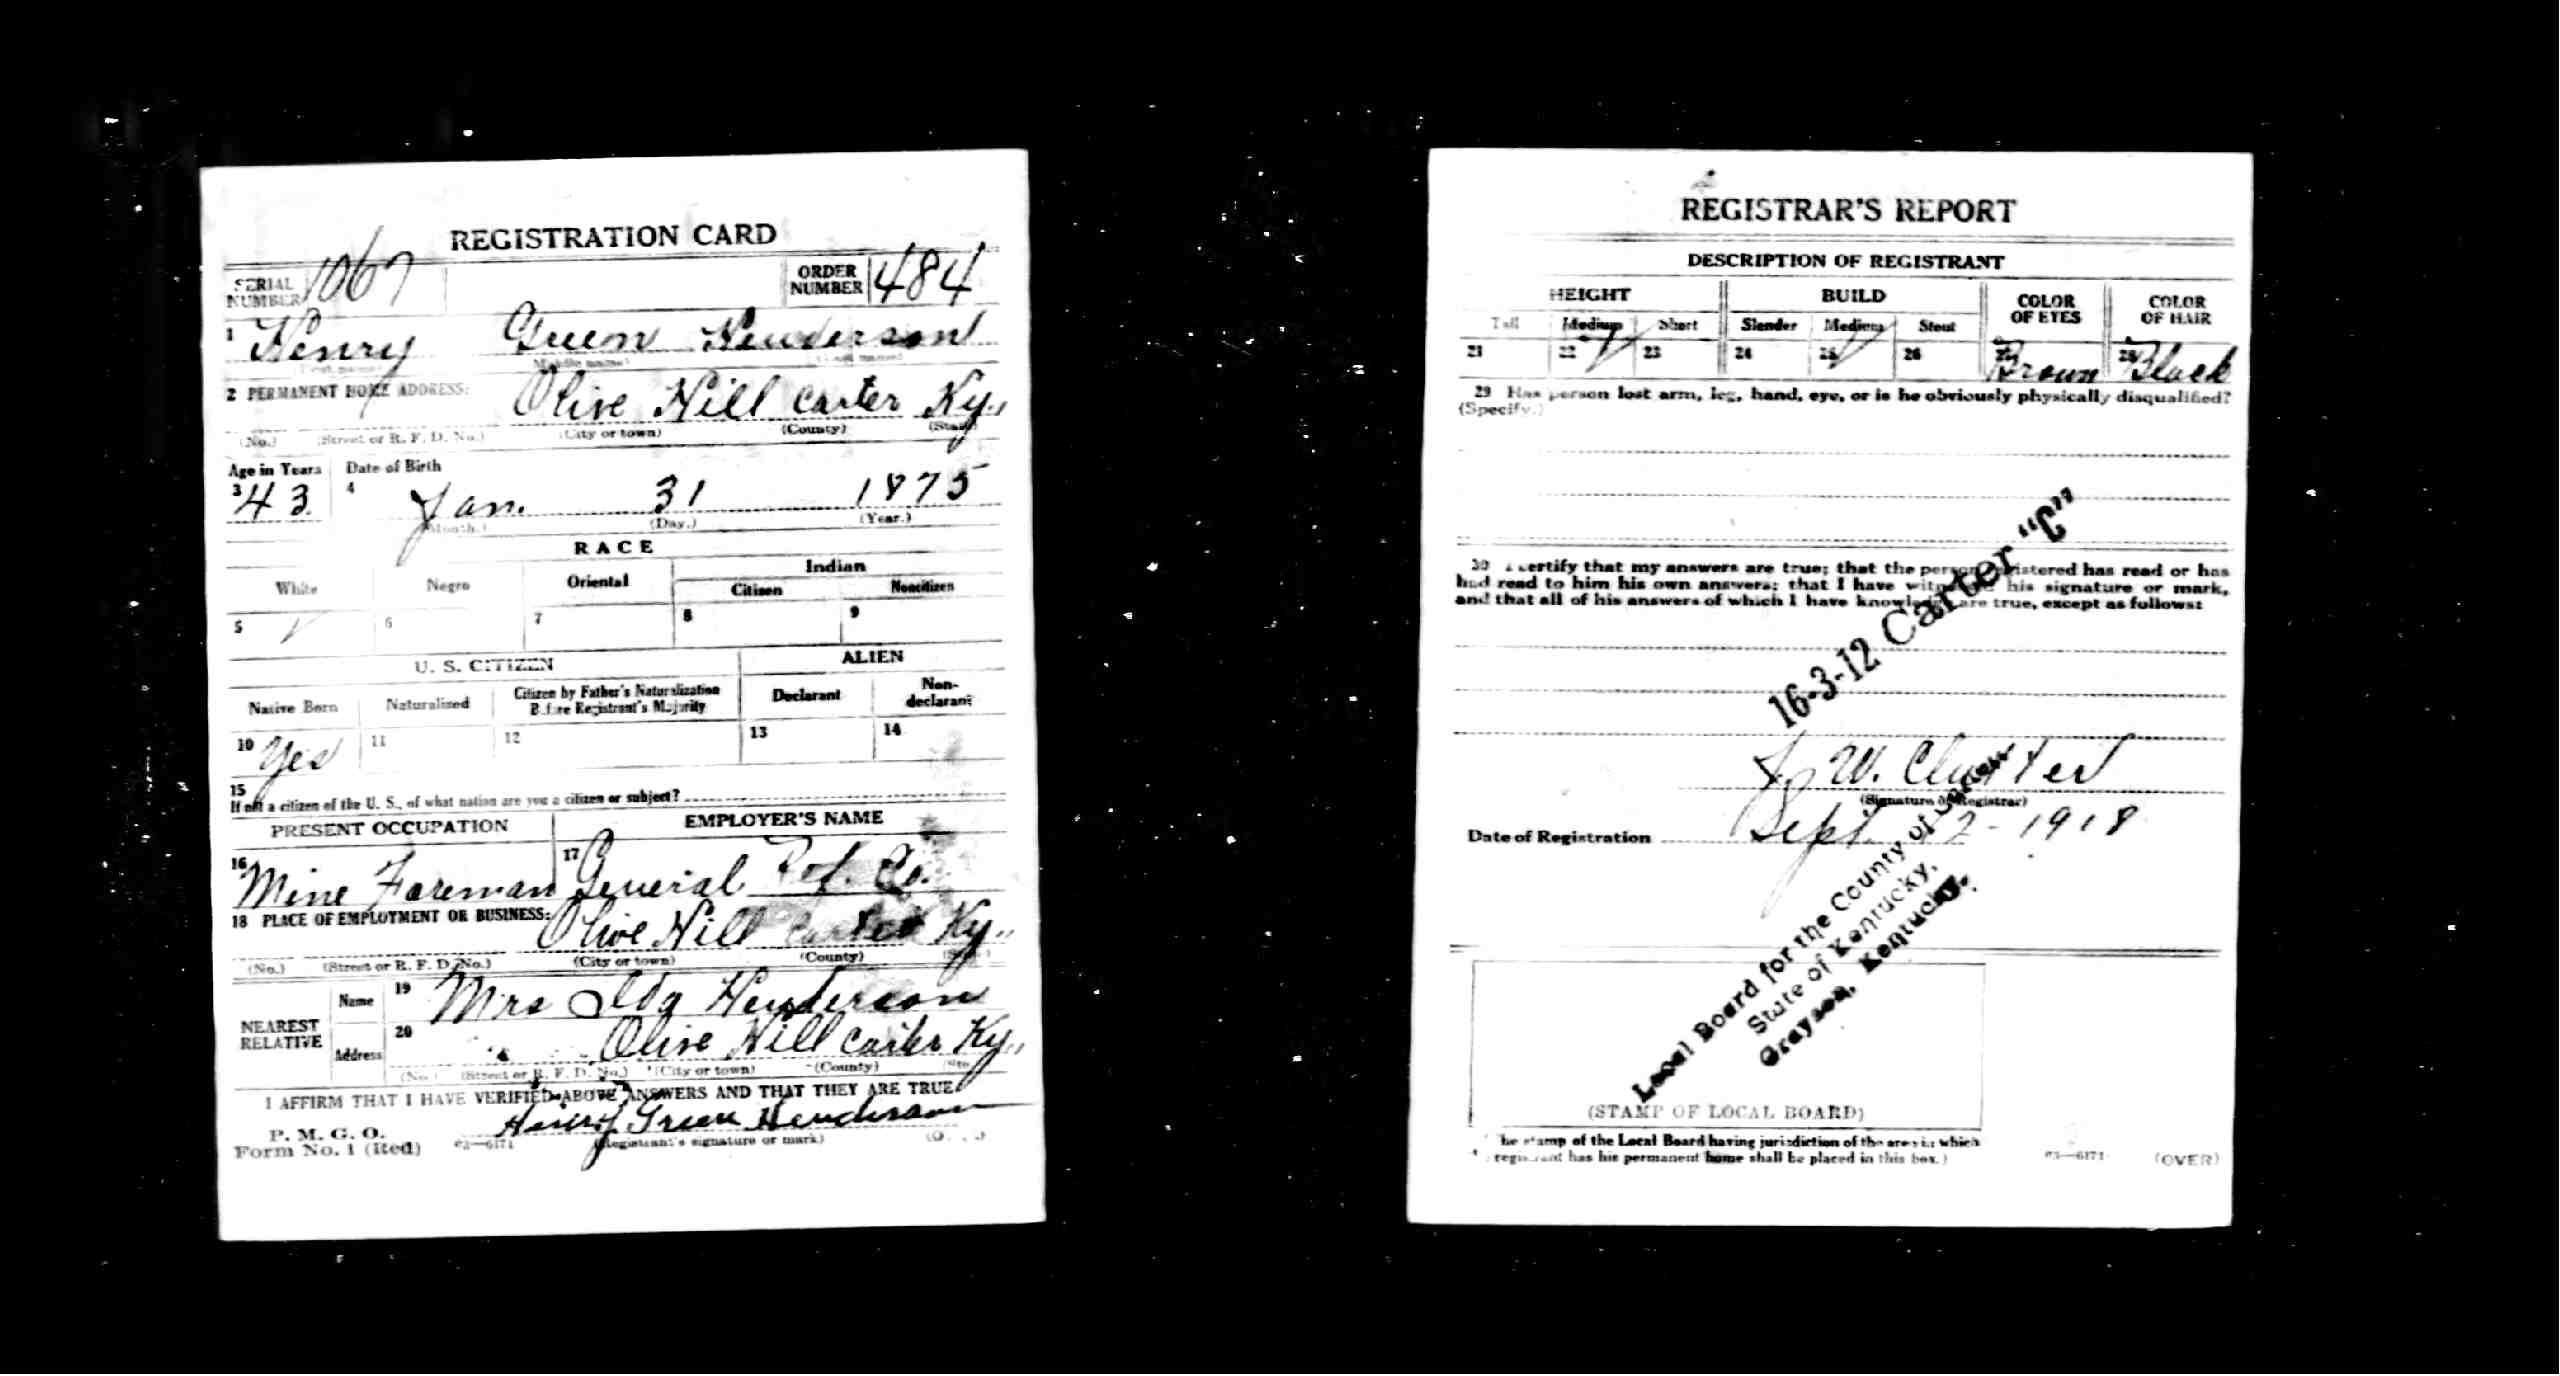 REGISTRATION CARD
SERIAL NUMBER 1067 ORDER NUMBER 484
1 Henry Green Henderson
(First name) (Middle name) (Last name)
2 PERMANENT HOME ADDRESS: Olive Hill Carter Ky.
(No.) (Street or R. F. D. No.) (City or town) (County) (State)
Age in Years Date of Birth
3 43 4 Jan. 31 1875
(Month.) (Day.) (Year.)
RACE
White Negro Oriental Indian
Citizen Noncitizen
5 ✓ 6 7 8 9
U. S. CITIZEN ALIEN
Native Born Naturalized Citizen by Father's Naturalization Before Registrant's Majority Declarant Non-declarant
10 Yes 11 12 13 14
15
If not a citizen of the U. S., of what nation are you a citizen or subject?
PRESENT OCCUPATION EMPLOYER'S NAME
16 Mine Foreman 17 General Ref. Co.
18 PLACE OF EMPLOYMENT OR BUSINESS: Olive Hill Carter Ky.
(No.) (Street or R. F. D. No.) (City or town) (County) (State)
NEAREST RELATIVE Name 19 Mrs Ida Henderson
Address 20 Olive Hill Carter Ky.
(No.) (Street or R. F. D. No.) (City or town) (County)
I AFFIRM THAT I HAVE VERIFIED ABOVE ANSWERS AND THAT THEY ARE TRUE
Henry Green Henderson
P. M. G. O.
Form No. 1 (Red) 03—6171 (Registrant's signature or mark)
REGISTRAR'S REPORT
DESCRIPTION OF REGISTRANT
HEIGHT BUILD COLOR OF EYES COLOR OF HAIR
Tall Medium Short Slender Medium Stout
21 22 ✓ 23 24 25 ✓ 26 27 Brown 28 Black
29 Has person lost arm, leg, hand, eye, or is he obviously physically disqualified?
(Specify.)
30 I certify that my answers are true; that the person registered has read or has
had read to him his own answers; that I have witnessed his signature or mark,
and that all of his answers of which I have knowledge are true, except as follows:
16-3-12 Carter "C"
W.
(Signature of Registrar)
Date of Registration Sept 12 - 1918
Local Board for the County of Carter
State of Kentucky,
Grayson, Kentucky.
(STAMP OF LOCAL BOARD)
The stamp of the Local Board having jurisdiction of the area in which
registrant has his permanent home shall be placed in this box.)
03—6171 (OVER)